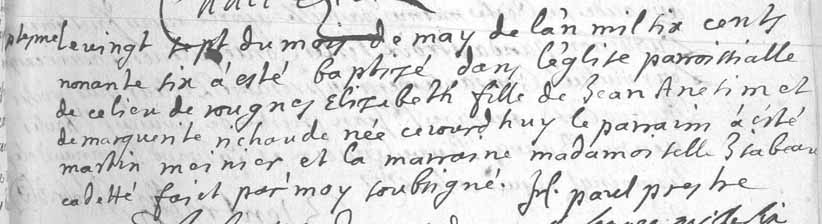 ptesme le vingt sept du mois de may de l'an mil six cents
nonante six à esté baptizé dans l'église parroissialle
de ce lieu de rougnes Elizabeth fille de Jean Anetim et
de marguerite richaude née ce jourd huy le parrain à ésté
martin meinier et la marraine madamoiselle Isabeau
cadetté faict par moy soubsigné. paul prestre